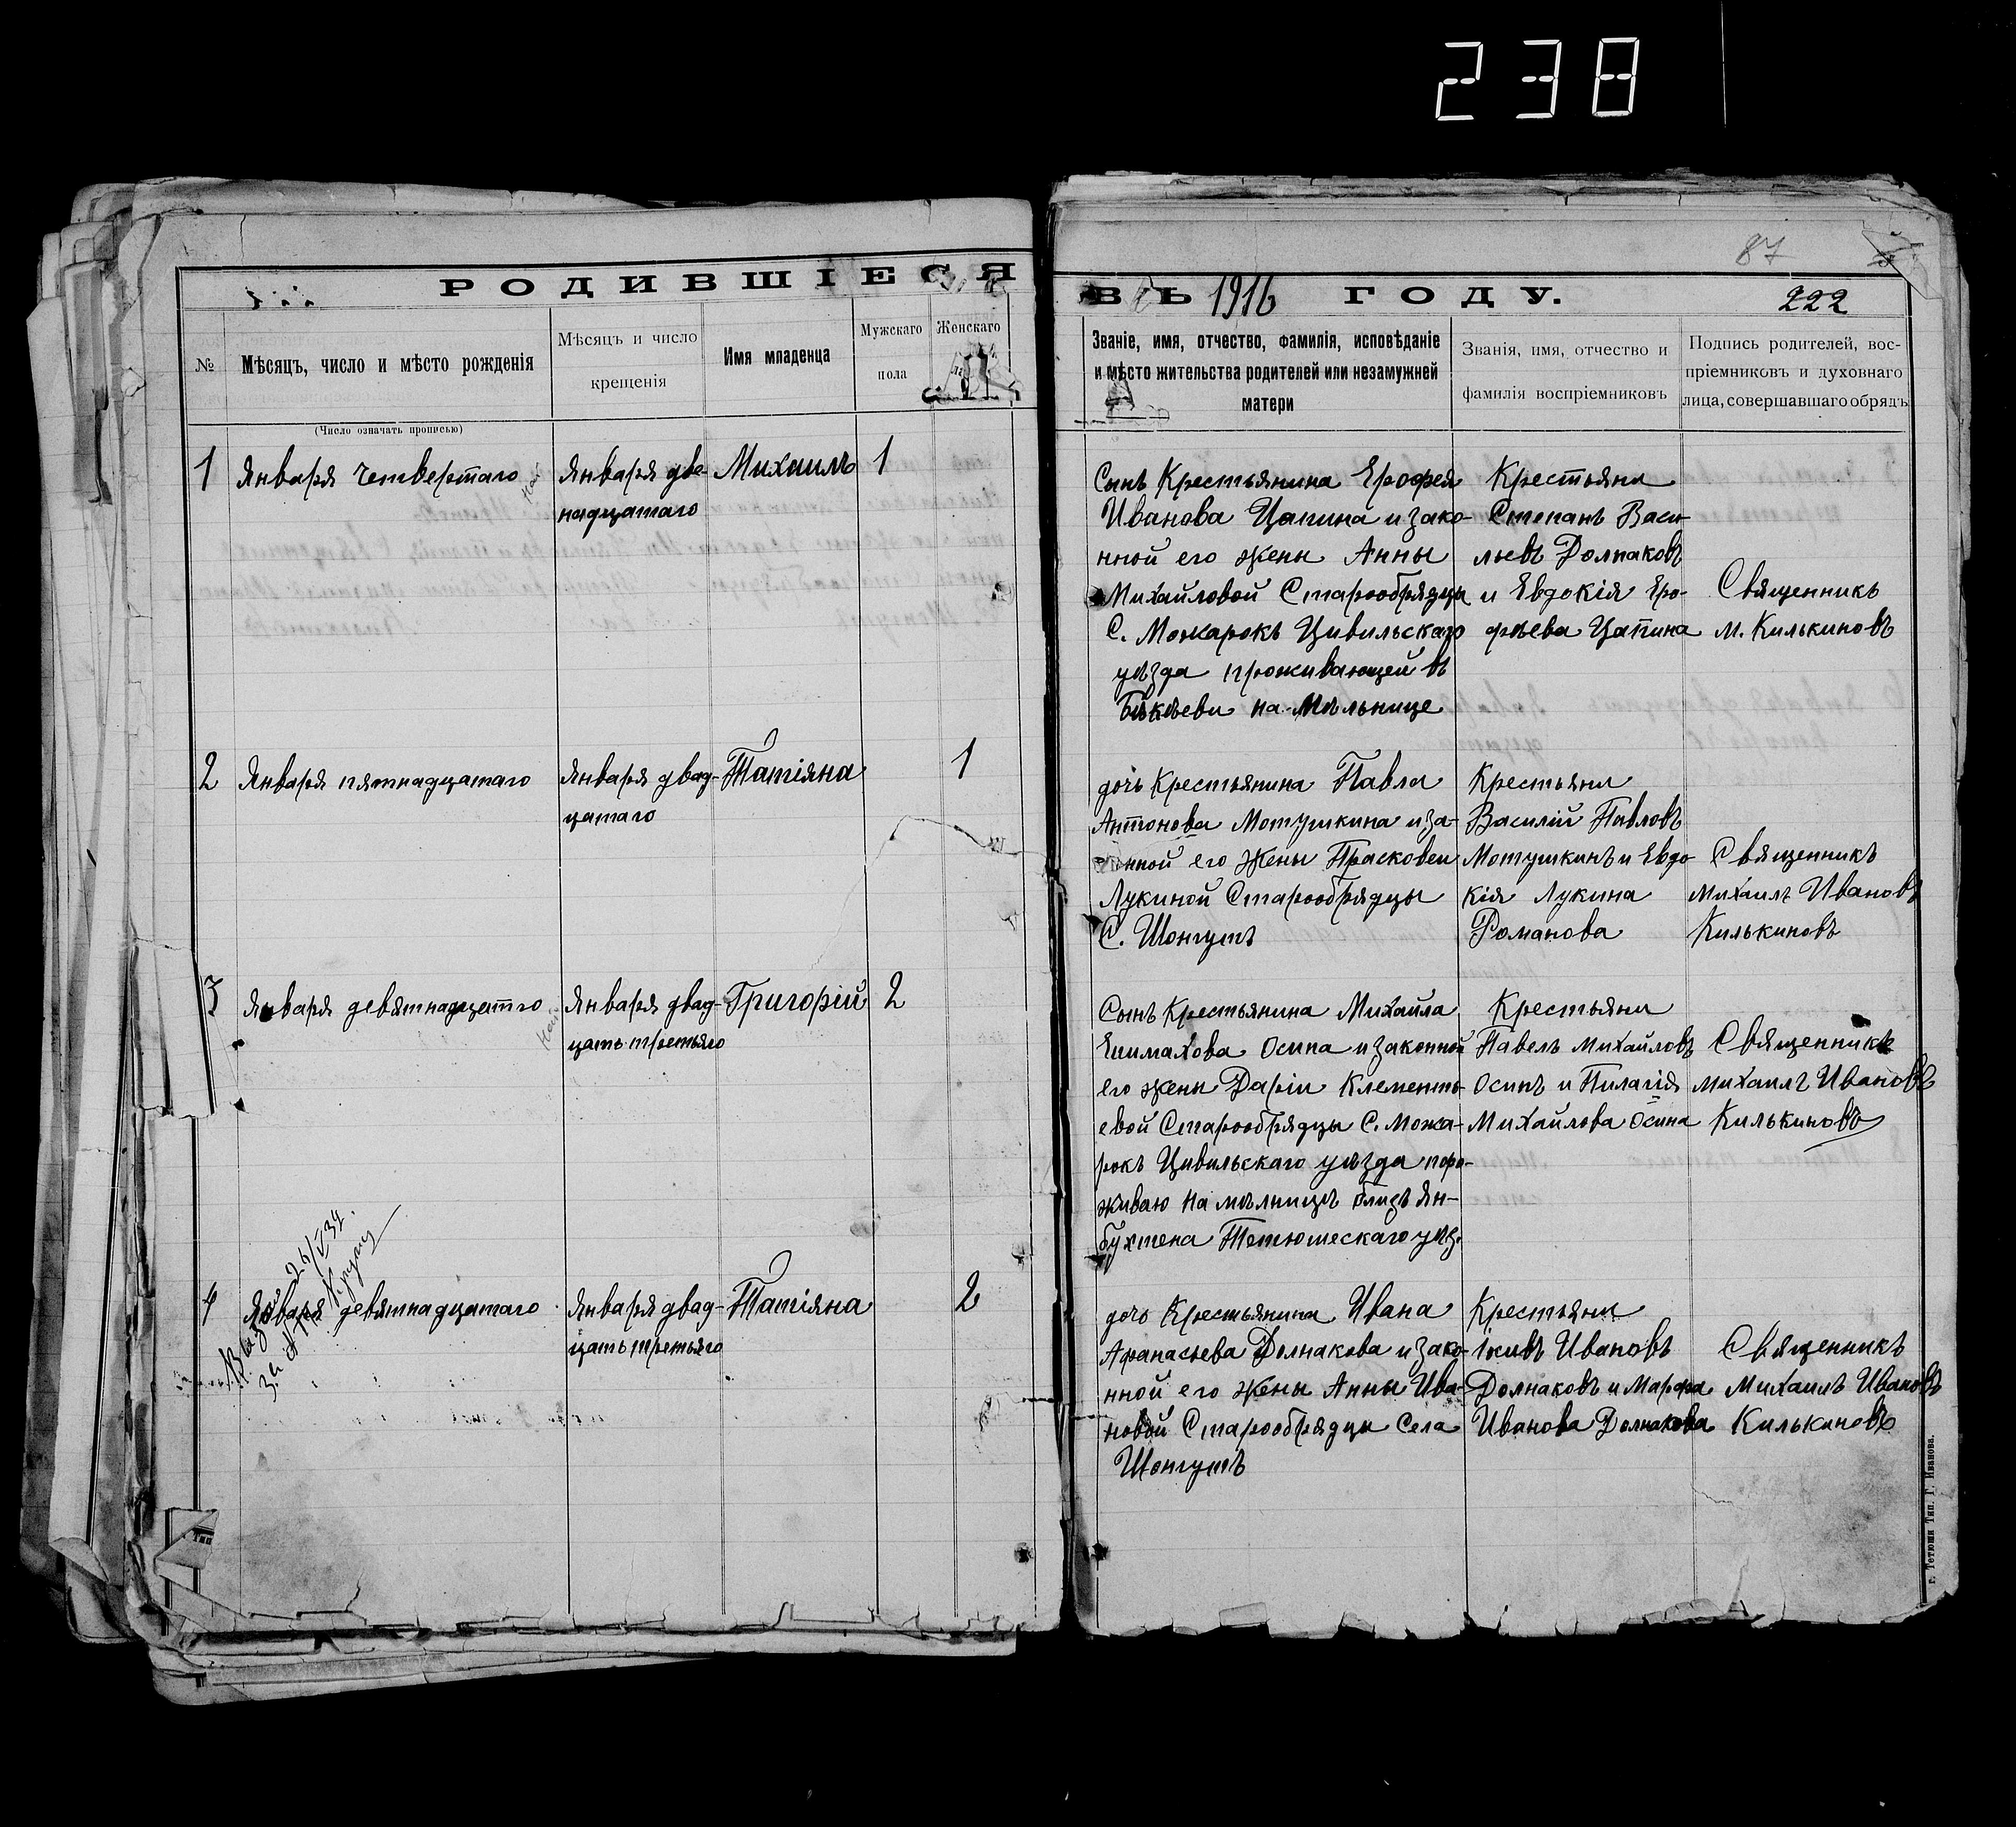 238
87
РОДИВШІЕСЯ
ВЪ 1916 ГОДУ.
222
№
Мѣсяцъ, число и мѣсто рожденія
(Число означать прописью)
Мѣсяцъ и число
крещенія
Имя младенца
Мужскаго
пола
Женскаго
Званіе, имя, отчество, фамилія, исповѣданіе
и мѣсто жительства родителей или незамужней
матери
Званія, имя, отчество и
фамилія воспріемниковъ
Подпись родителей, вос-
пріемниковъ и духовнаго
лица, совершавшаго обрядъ
1
Января четвертаго
Января две-
надцатаго
Михаилъ
1
Сынъ Крестьянина Ерофея
Иванова Цапина и зако-
нной его жены Анны
Михайловой Старообрядцы
С. Можарокъ Цивильскаго
уѣзда проживающей въ
на Мѣльнице
Крестьяни
Степанъ Васи-
льевъ Долпаковъ
и Евдокія Еро-
фѣева Цапина
Священникъ
М. Килькиновъ
2
Января пятнадцатаго
Января двад-
цатаго
Татіяна
1
дочь Крестьянина Павла
Антонова Мотушкина и за-
нной его жены Прасковеи
Лукиной Старообрядцы
С. Шонгутъ
Крестьяни
Василій Павловъ
Мотушкинъ и Евдо-
кія Лукина
Романова
Священникъ
Михаилъ Ивановъ
Килькиновъ
3
Января девятнадцатго
Января двад-
цать третьяго
Григорій
2
Сынъ Крестьянина Михайла
Епимахова Осипа и законной
его жени Даріи Клементь-
евой Старообрядцы С. Можа-
рокъ Цивильскаго уѣзда про-
живаю на мѣлницѣ близъ Ян-
бухтена Тетюшескаго уѣз.
Крестьяни
Павелъ Михайловъ
Осипъ и Пилагія
Михайлова Осипа
Священникъ
Михаилъ Ивановъ
Килькиновъ
26/V 34.
4
Января девятнадцатаго
Января двад-
цать третьяго
Татіяна
2
дочь Крестьянина Ивана
Афанасьева Долпакова и зако-
нной его жены Анны Ива-
новой Старообрядцы Села
Шонгутъ
Крестьяни
Іаковъ Ивановъ
Долпаковъ и Марфа
Иванова Долпакова
Священникъ
Михаилъ Ивановъ
Килькиновъ
г. Тетюши Тип. Г. Иванова.